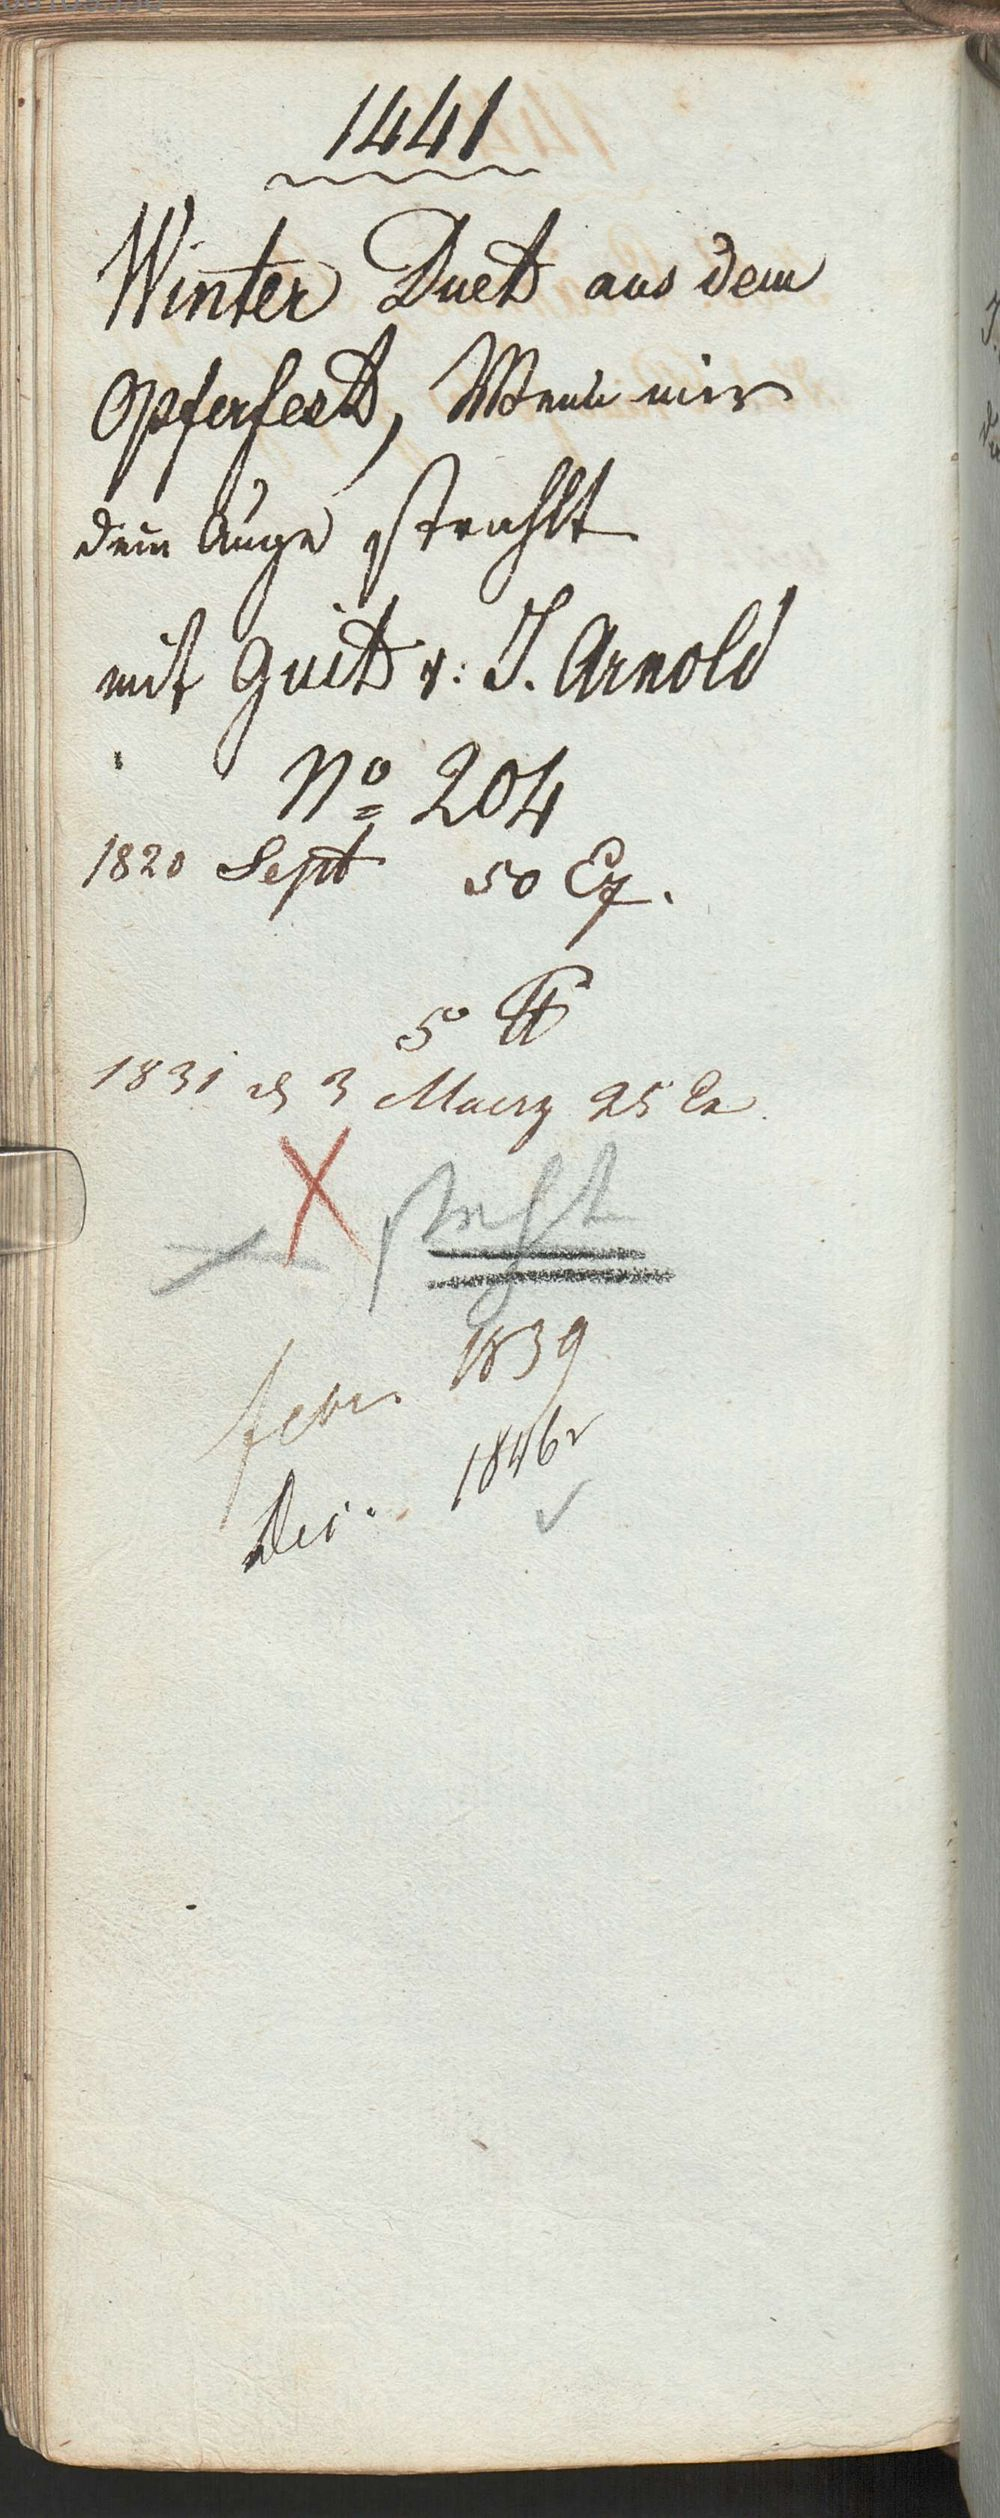 1441
Winter Duet aus dem
Opferfest, Wenn mir
dein Auge strahlt
mit Guit v: J. Arnold
No 204
1820 Sept 50 Ex.
5
1831 d 3 Maerz 25 Ex
X steht
febr. 1839
Dec. 1846